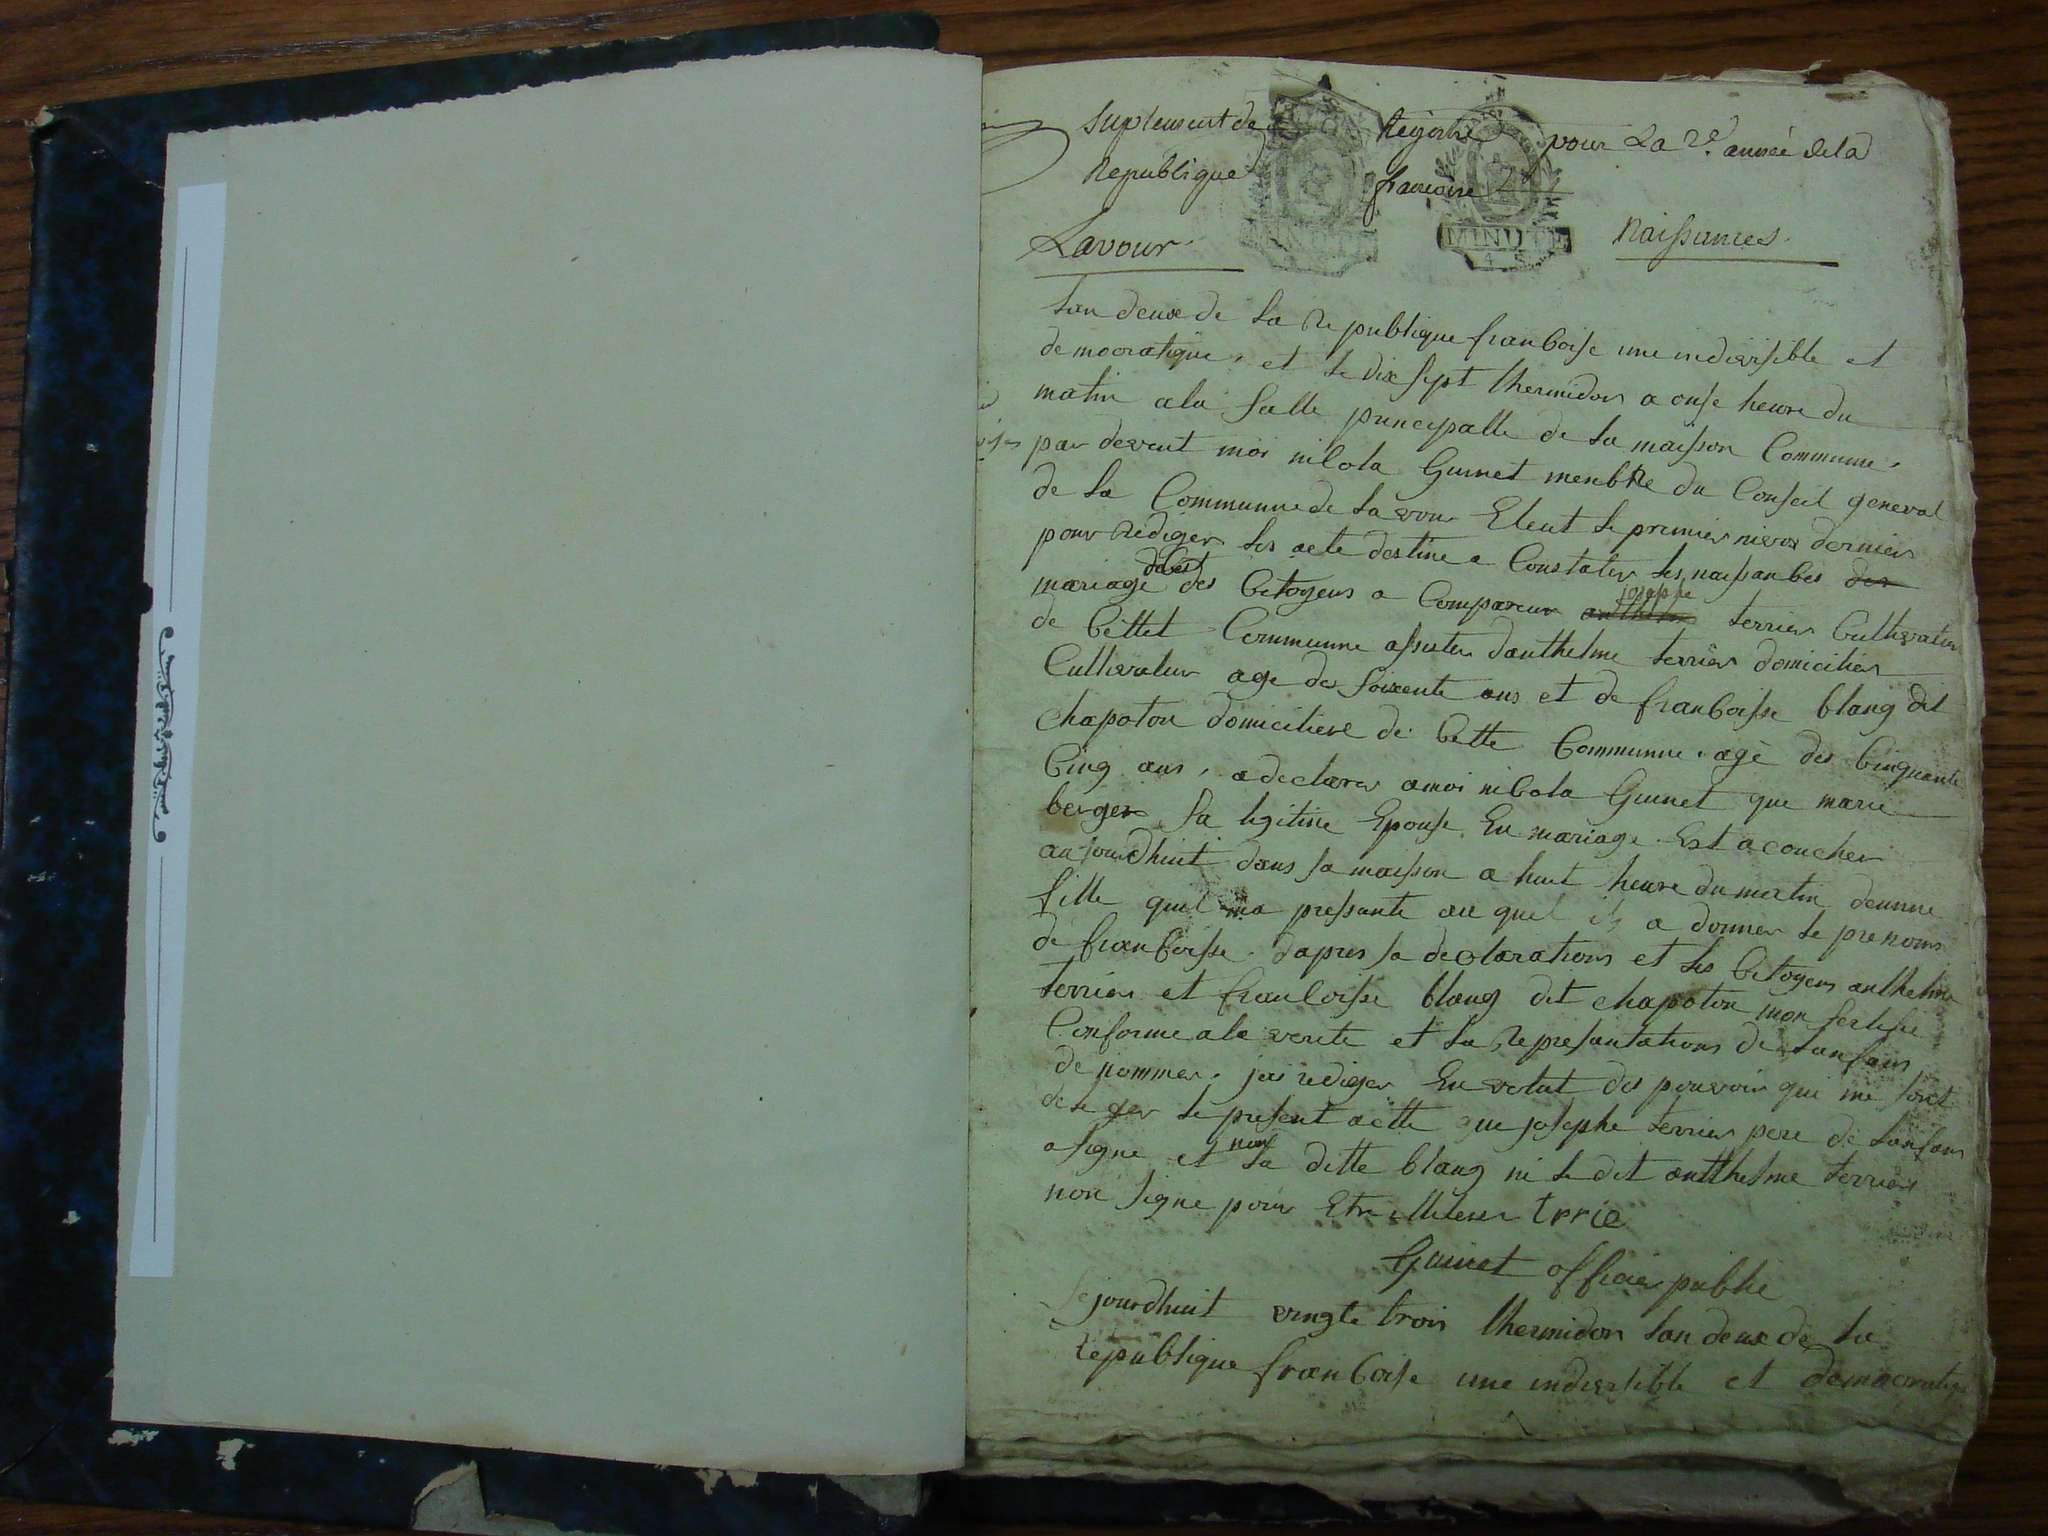 Suplement de Registre pour La 2e. année dela
Republique francaise
MINUTE
Lavour. Naissances.
lan deux de la Republique francoise une indivisible et
democratique, et le dix sept thermidor a onse heure du
matin ala salle principalle de la maisson Commune,
par devent moi nicola Guinet menbre du Conseil general
de la Communne de lavour Eleut le premier nivos dernier
pour rediger les acte destine a Constater les naissances des
mariage deces des Citoyens a Compareur anthelme josephe terrier Cultivateur
de Cettet Communne assister danthelme terrier domicilier
Cultivateur age des soixente ans et de francoisse blanq dit
chapoton domiciliere de Cette Communne agé des Cinquante
Cinq ans, a declarer amoi nicola Guinet que marie
berger sa ligitime Epouse En mariage Est acoucher
aujourdhuit dans sa maisson a huit heure du matin deunne
fille quil ma pressante au quel il a donner le prenoms
de francoisse dapres sa declarations et les Citoyens anthelme
terrier et francoisse blanq dit chapoton mon sertifie
Conforme ala verite et la represantations de lanfans
denommer. jai rediger En vertut des pouvoir qui me sont
le present actte que josephe terrier pere de lanfans
a signe et non la ditte blanq ni le dit antthelme terrier
non signe pour Etre illiterer terrie
Guinet officier public
Sejourdhuit vingte trois thermidor lan deux de la
republique francoise une indivisible et democratique